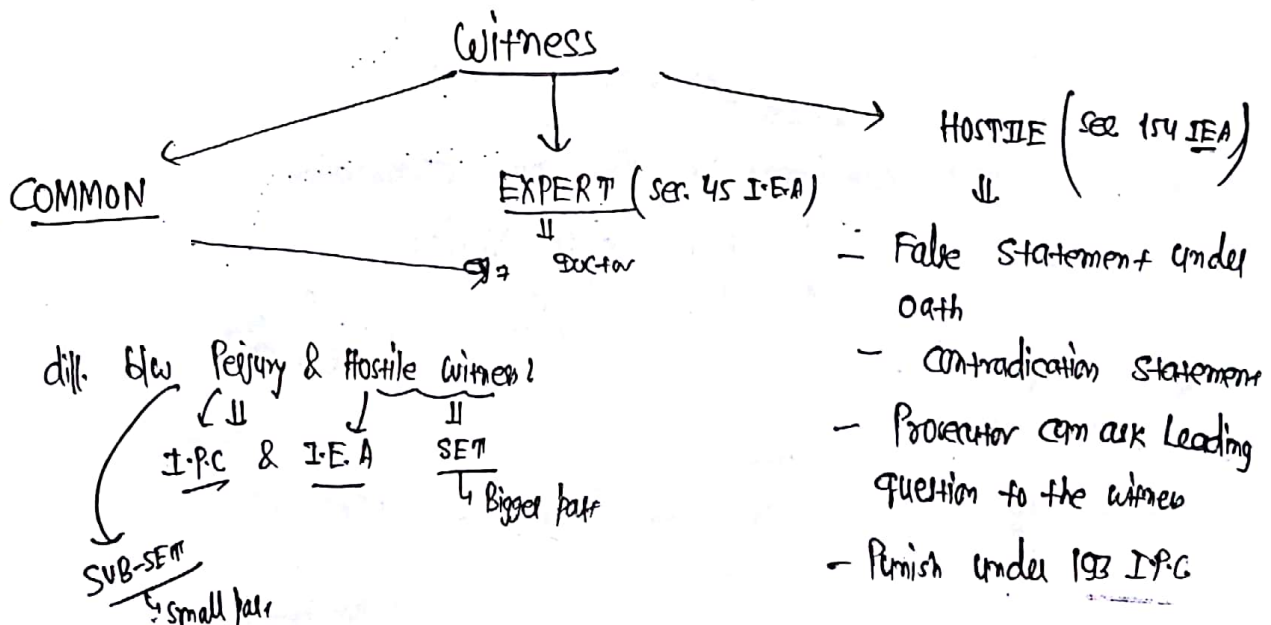 Witness
COMMON
EXPERT (sec. 45 I.E.A)
Doctor
HOSTILE (sec 154 IEA)
- False statement under
oath
- contradication statement
- Prosecutor can ask Leading
question to the witness
- Punish under 193 I.P.C
diff. b/w Perjury & Hostile witness?
I.P.C & I.E.A
SET
Bigger part
SUB-SET
small part